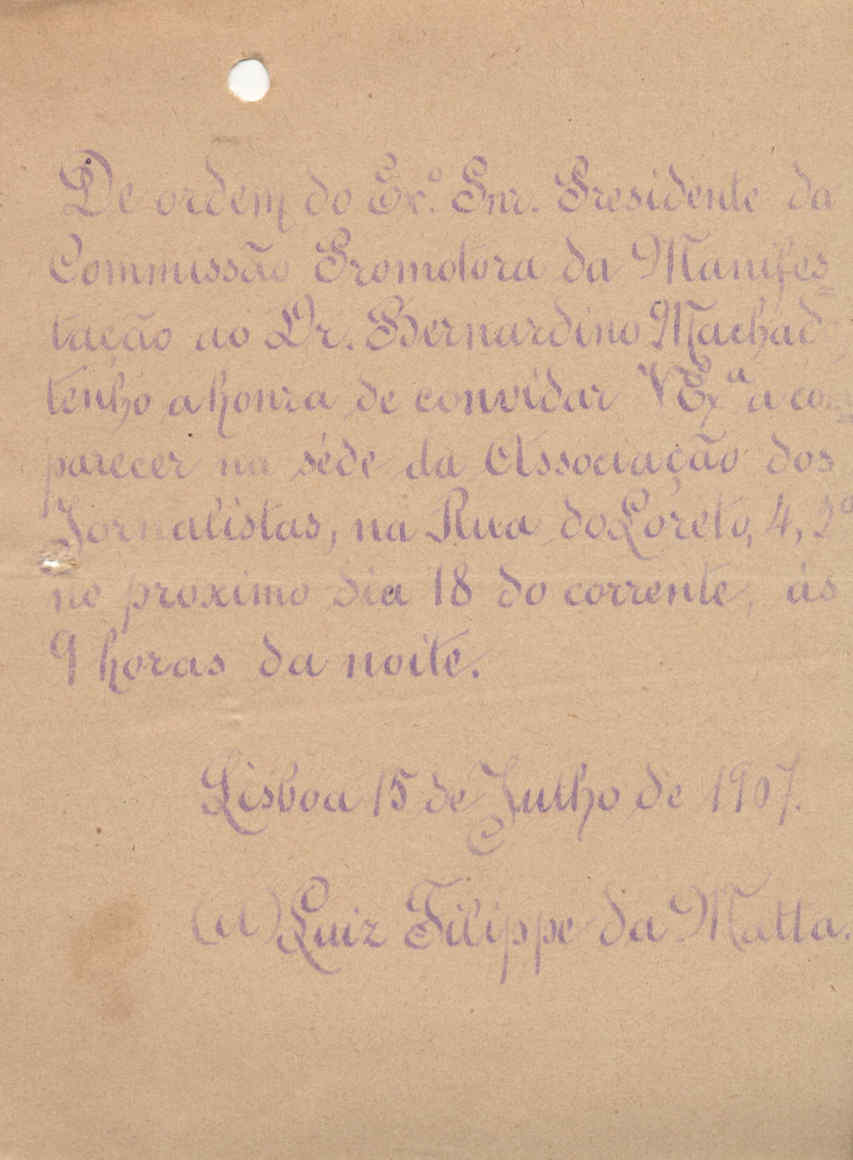 De ordem do Ex.º Snr. Presidente da
Commissão Promotora da Manifes=
tação ao Dr. Bernardino Machado,
tenho a honra de convidar V Ex.ª a com=
parecer na séde da Associação dos
Jornalistas, na Rua do Loreto, 4, 2º
no proximo dia 18 do corrente, ás
9 horas da noite.
Lisboa 15 de Julho de 1907.
(a) Luiz Filippe da Matta.